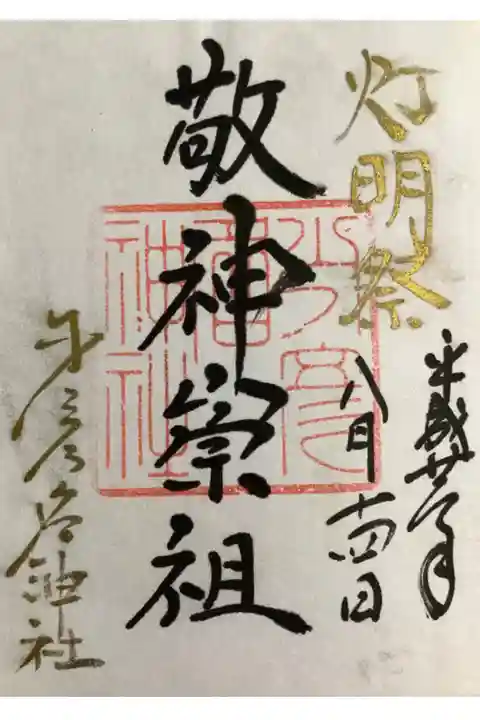 灯明祭
平成廿年
八月十四日
敬神祭祖
神社
神社